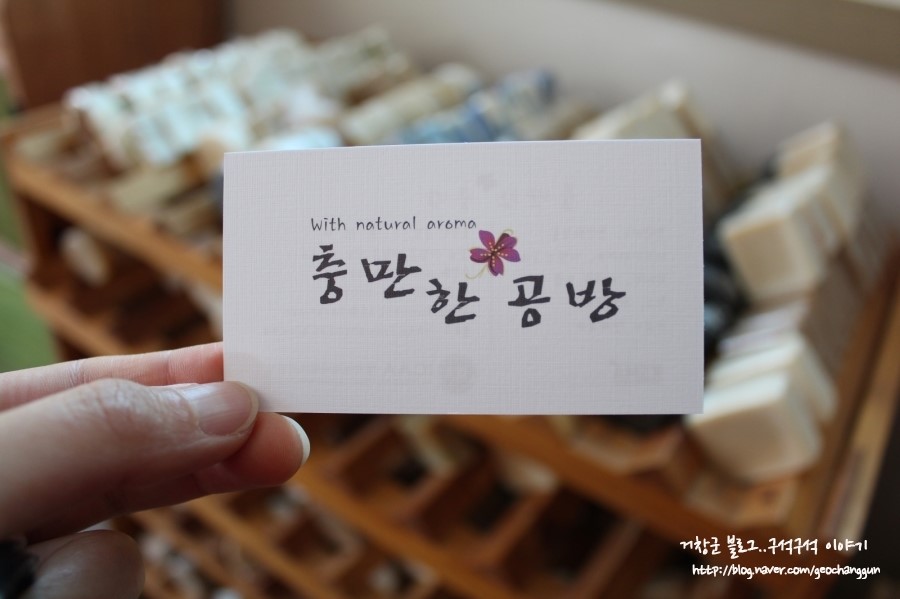 With natural aroma
충만한 공방
거창군 블로그..구석구석 이야기
http://blog.naver.com/geochanggun